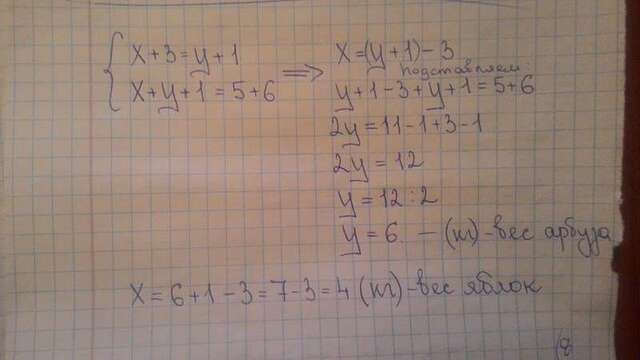 x+3=y+1
x+y+1=5+6 ⇒ x=(y+1)-3
подставляем:
y+1-3+y+1=5+6
2y=11-1+3-1
2y=12
y=12:2
y=6 – (т)-вес арбуза
x=6+1-3=7-3=4(т)-вес яблок